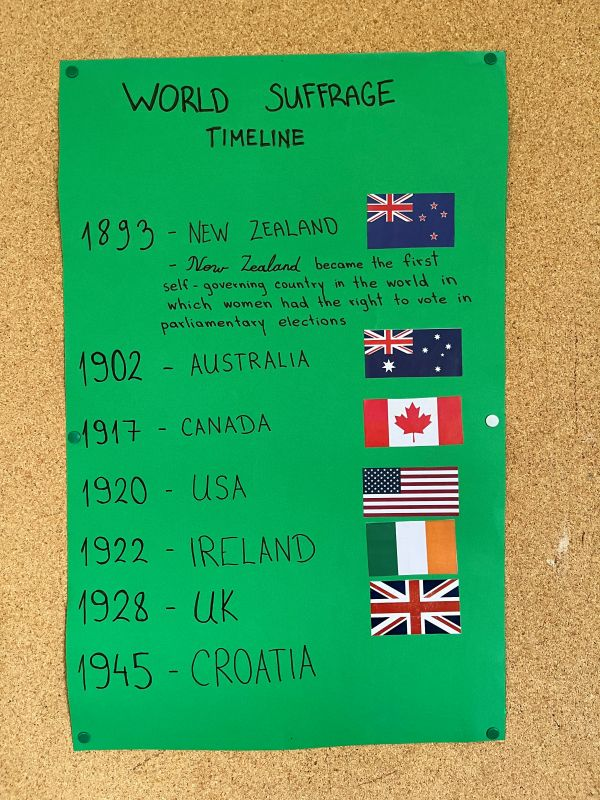 WORLD SUFFRAGE
TIMELINE
1893 - NEW ZEALAND
- New Zealand became the first
self-governing country in the world in
which women had the right to vote in
parliamentary elections
1902 - AUSTRALIA
1917 - CANADA
1920 - USA
1922 - IRELAND
1928 - UK
1945 - CROATIA